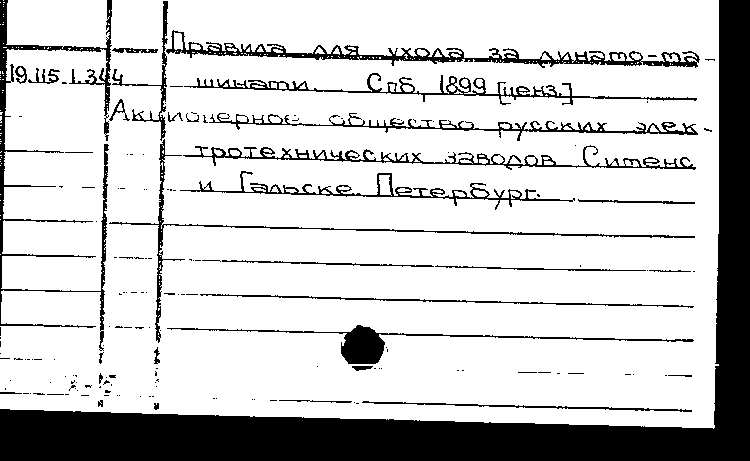 Правила для ухода за динамо-ма-
19.115.1.344 шинами. Спб., 1899 [ценз.]
Акционерное общество русских элек-
тротехнических заводов Сименс
и Гальске. Петербург.